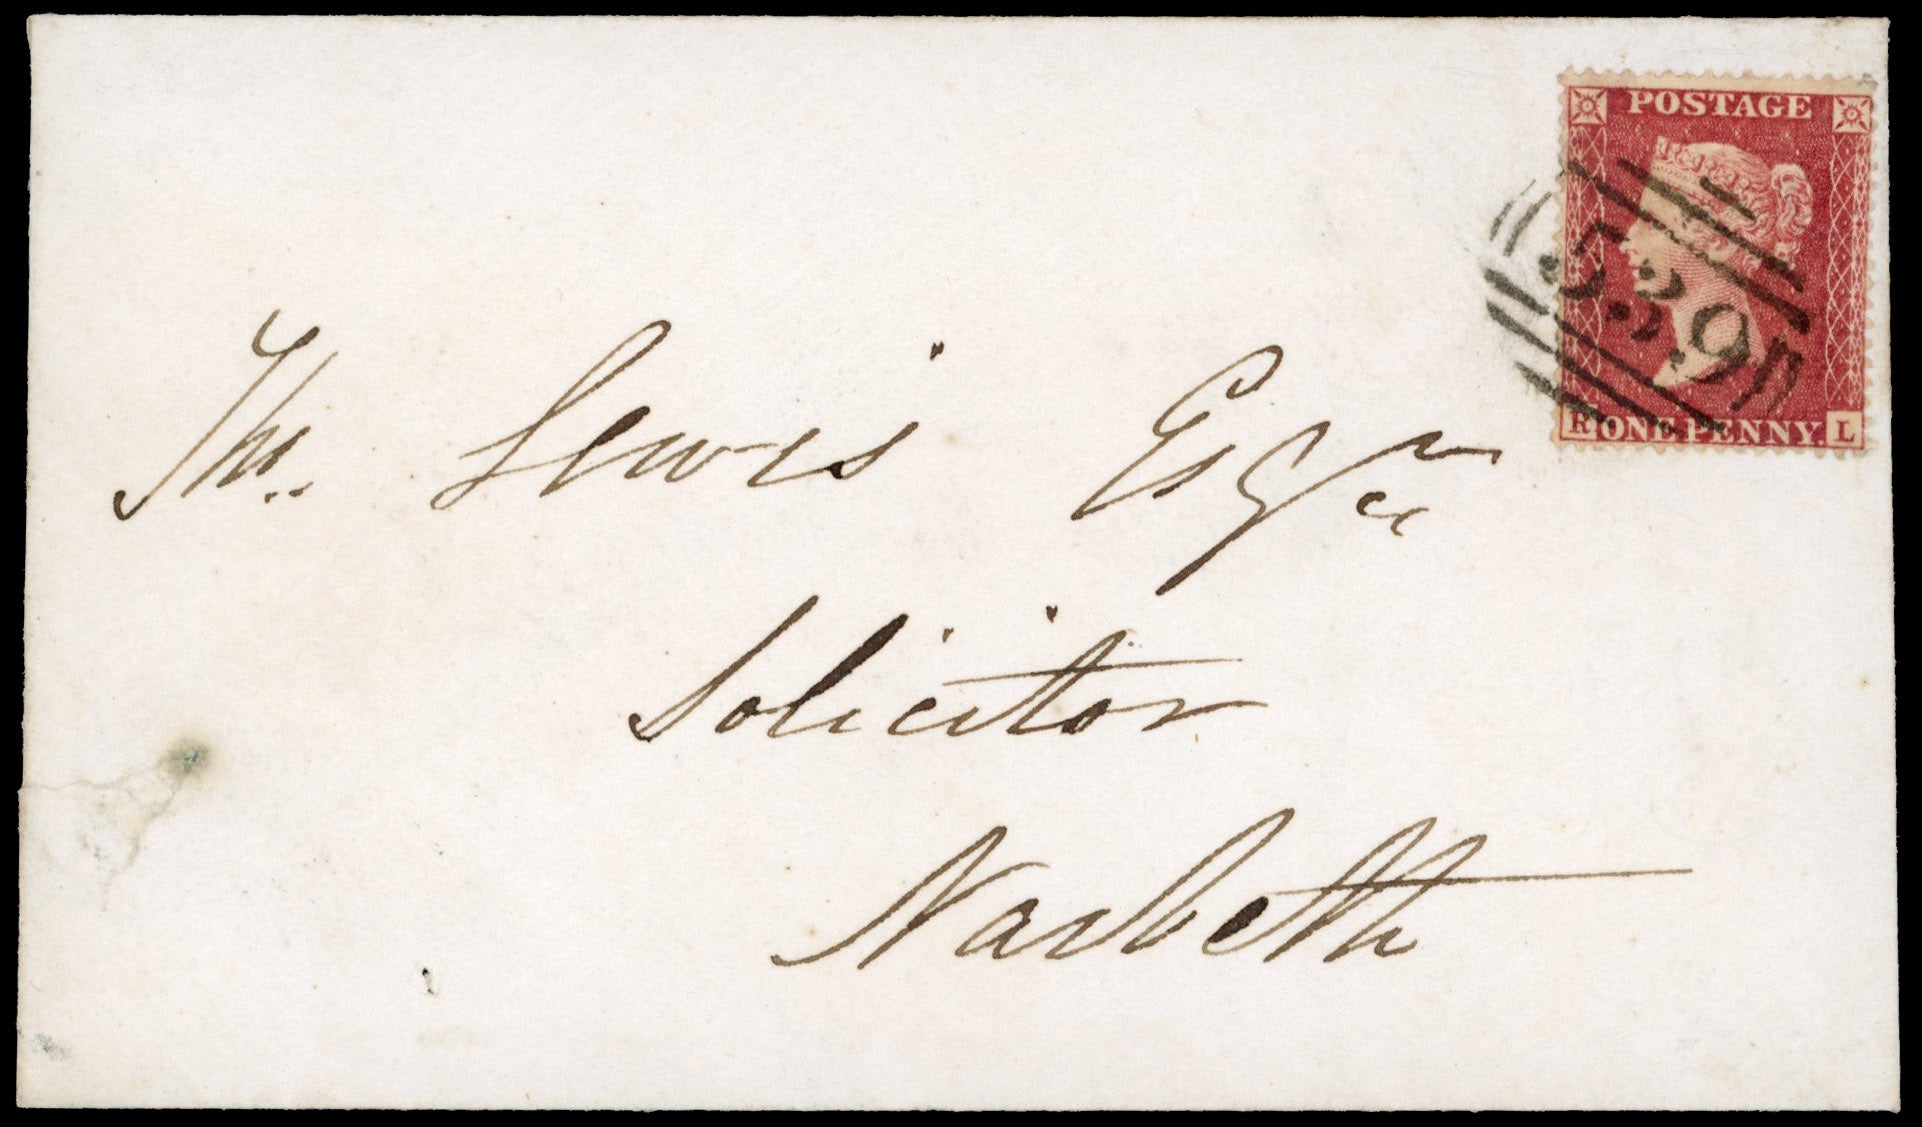 POSTAGE
539
R ONE PENNY. L
Thos. Lewis Esqre
Solicitor
Narbeth